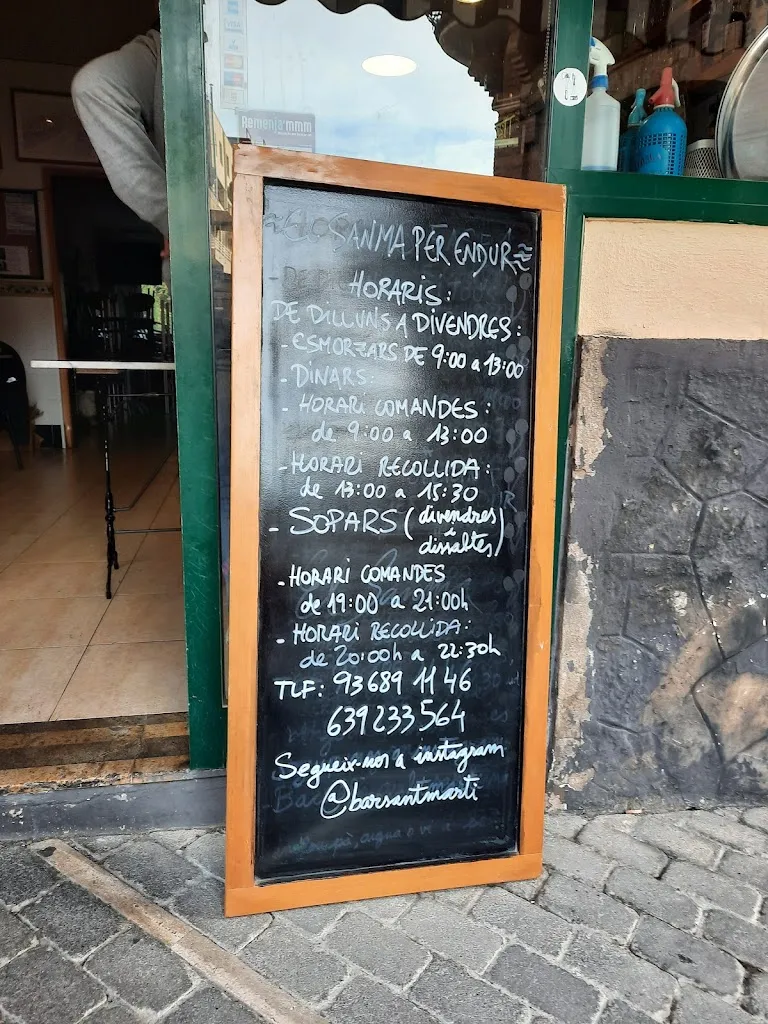 Remenja'mmm
SANMA PER ENDUR
HORARIS:
DE DILLUNS A DIVENDRES:
- ESMORZARS DE 9:00 a 13:00
- DINARS:
- HORARI COMANDES:
de 9:00 a 13:00
- HORARI RECOLLIDA:
de 13:00 a 15:30
- SOPARS (divendres i dissabtes)
- HORARI COMANDES
de 19:00 a 21:00h
- HORARI RECOLLIDA:
de 20:00h a 22:30h
TLF: 93 689 11 46
639233564
Segueix-nos a instagram
@barsantmarti